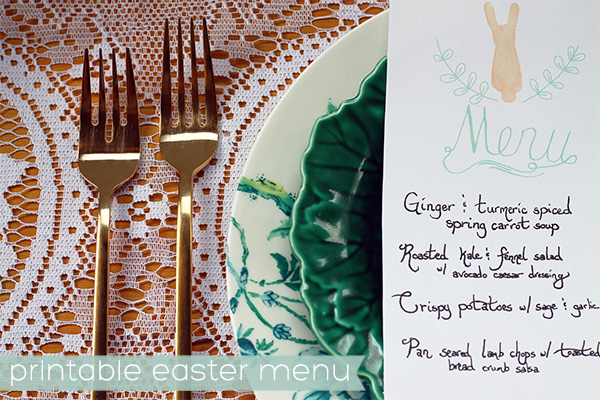 Menu
Ginger & turmeric spiced
spring carrot soup
Roasted Kale & fennel salad
w/ avocado caesar dressing
Crispy potatoes w/ sage & garlic
Pan seared lamb chops w/ toasted
bread crumb salsa
printable easter menu